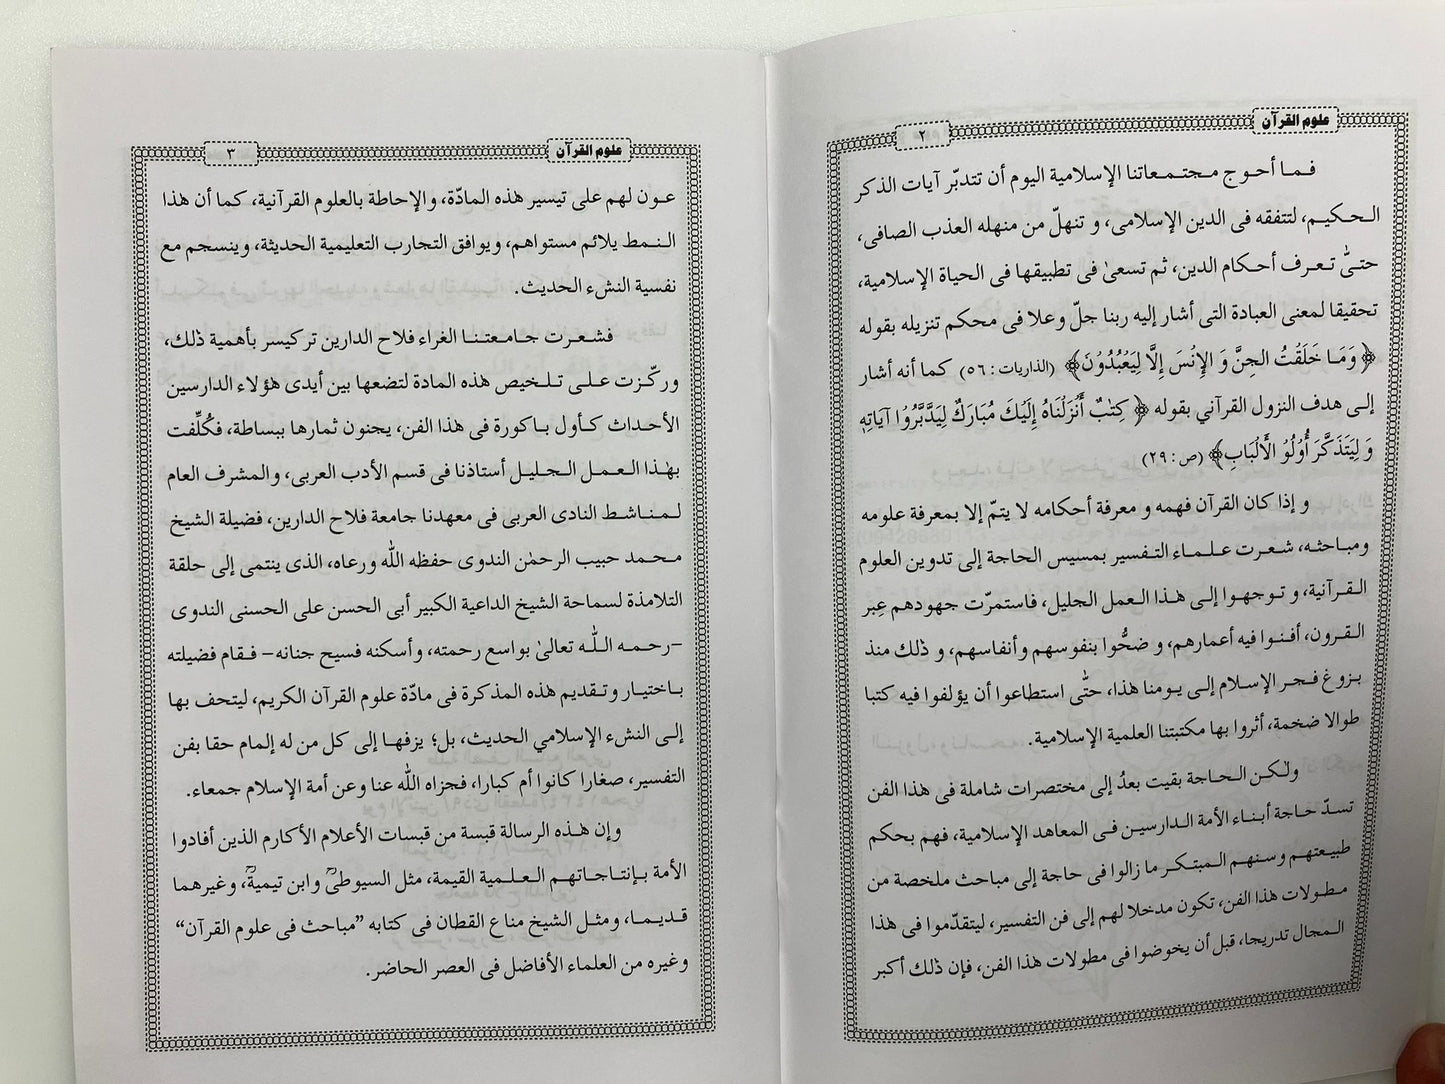 علوم القرآن
٢
فـمـا أحـوج مـجتـمـعاتنا الإسلامية اليوم أن تتدبّر آيات الذكر
الـحـكيـم، لتتفقه فى الدين الإسلامى، و تنهلّ من منهله العذب الصافى،
حتىّٰ تـعـرف أحـكام الدين، ثم تسعىٰ فى تطبيقها فى الحياة الإسلامية،
تحقيقا لمعنى العبادة التى أشار إليه ربنا جلّ وعلا فى محكم تنزيله بقوله
﴿ وَمَـا خَلَقْتُ الجِنَّ وَ الإِنْسَ إِلَّا لِيَعْبُدُوْنَ﴾ (الذاريات : ٥٦) كما أنه أشار
إلـى هدف النزول القرآني بقوله ﴿ كِتٰبٌ أَنْزَلْنَاهُ إِلَيْكَ مُبَارَكٌ لِيَدَّبَّرُوْا آيَاتِهٖ
وَ لِيَتَذَكَّرَ أُوْلُوْ الأَلْبَابِ﴾ (ص : ٢٩)
و إذا كان القرآن فهمه و معرفة أحكامه لا يتمّ إلا بمعرفة علومه
ومبـاحثـه، شـعـرت عـلـمـاء التـفسير بمسيس الحاجة إلى تدوين العلوم
الـقـرآنية، و تـوجهـوا إلـى هـذا الـعمل الجليل، فاستمرّت جهودهم عِبر
الـقـرون، أفـنـوا فيه أعمارهم، و ضحُّوا بنفوسهم وأنفاسهم، و ذلك منذ
بـزوغ فـجـر الإسـلام إلـى يـومنا هذا، حتّٰى استطاعوا أن يؤلفوا فيه كتبا
طوالا ضخمة، أثروا بها مكتبتنا العلمية الإسلامية.
ولٰـكـن الـحـاجة بقيت بعدُ إلى مختصرات شاملة فى هذا الفن
تسدّ حاجة أبـنـاء الأمة الـدارسيـن فـى المعاهد الإسلامية، فهم بحكم
طبيـعتهـم وسـنهـم الـمبتكـر ما زالوا فى حاجة إلى مباحث ملخصة من
مـطـولات هذا الفن، تكون مدخلا لهم إلى فن التفسير، ليتقدّموا فى هذا
الـمجال تدريجا، قبل أن يخوضوا فى مطولات هذا الفن، فإن ذلك أكبر
علوم القرآن
٣
عـون لهم على تيسير هذه المادّة، والإحاطة بالعلوم القرآنية، كما أن هذا
الـنـمط يلائم مستواهم، ويوافق التجارب التعليمية الحديثة، وينسجم مع
نفسية النشء الحديث.
فـشـعـرت جـامـعتـنـا الغراء فلاح الدارين تركيسر بأهمية ذلك،
وركّـزت عـلـى تـلـخيص هذه المادة لتضعها بين أيدى هؤلاء الدارسين
الأحـداث كـأول بـاكورة فى هذا الفن، يجنون ثمارها ببساطة، فكُلِّفت
بهٰـذا الـعمـل الـجلـيل أستاذنا فى قسم الأدب العربى، والمشرف العام
لـمـنـاشـط النادى العربى فى معهدنا جامعة فلاح الدارين، فضيلة الشيخ
مـحـمـد حبيب الرحمٰن الندوى حفظه اللّٰه ورعاه، الذى ينتمى إلى حلقة
التلامذة لسماحة الشيخ الداعية الكبير أبى الحسن على الحسنى الندوى
–رحـمـه الـلّٰـه تعالىٰ بواسع رحمته، وأسكنه فسيح جنانه– فـقـام فضيلته
بـاختيـار وتـقـديم هذه المذكرة فى مادّة علوم القرآن الكريم، ليتحف بها
إلـى النشء الإسلامي الحديث، بل؛ يزفهـا إلى كل من له إلمام حقا بفن
التفسير، صغارا كانوا أم كبارا، فجزاه اللّٰه عنا وعن أمة الإسلام جمعاء.
وإن هـذه الرسالة قبسة من قبسات الأعلام الأكارم الذين أفادوا
الأمة بـإنتـاجـاتهـم الـعـلـمية القيمة، مثل السيوطىؒ وابن تيميةؒ، وغيرهما
قـديمـا، ومثـل الشيخ مناع القطان فى كتابه ”مباحث فى علوم القرآن“
وغيره من العلماء الأفاضل فى العصر الحاضر.